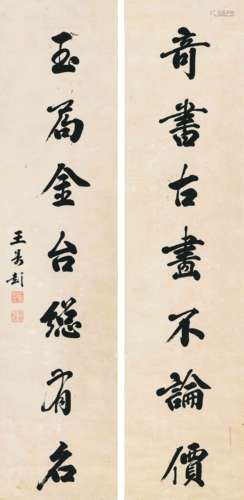 奇書古畫不論價
玉局金台總有名
王壽彭